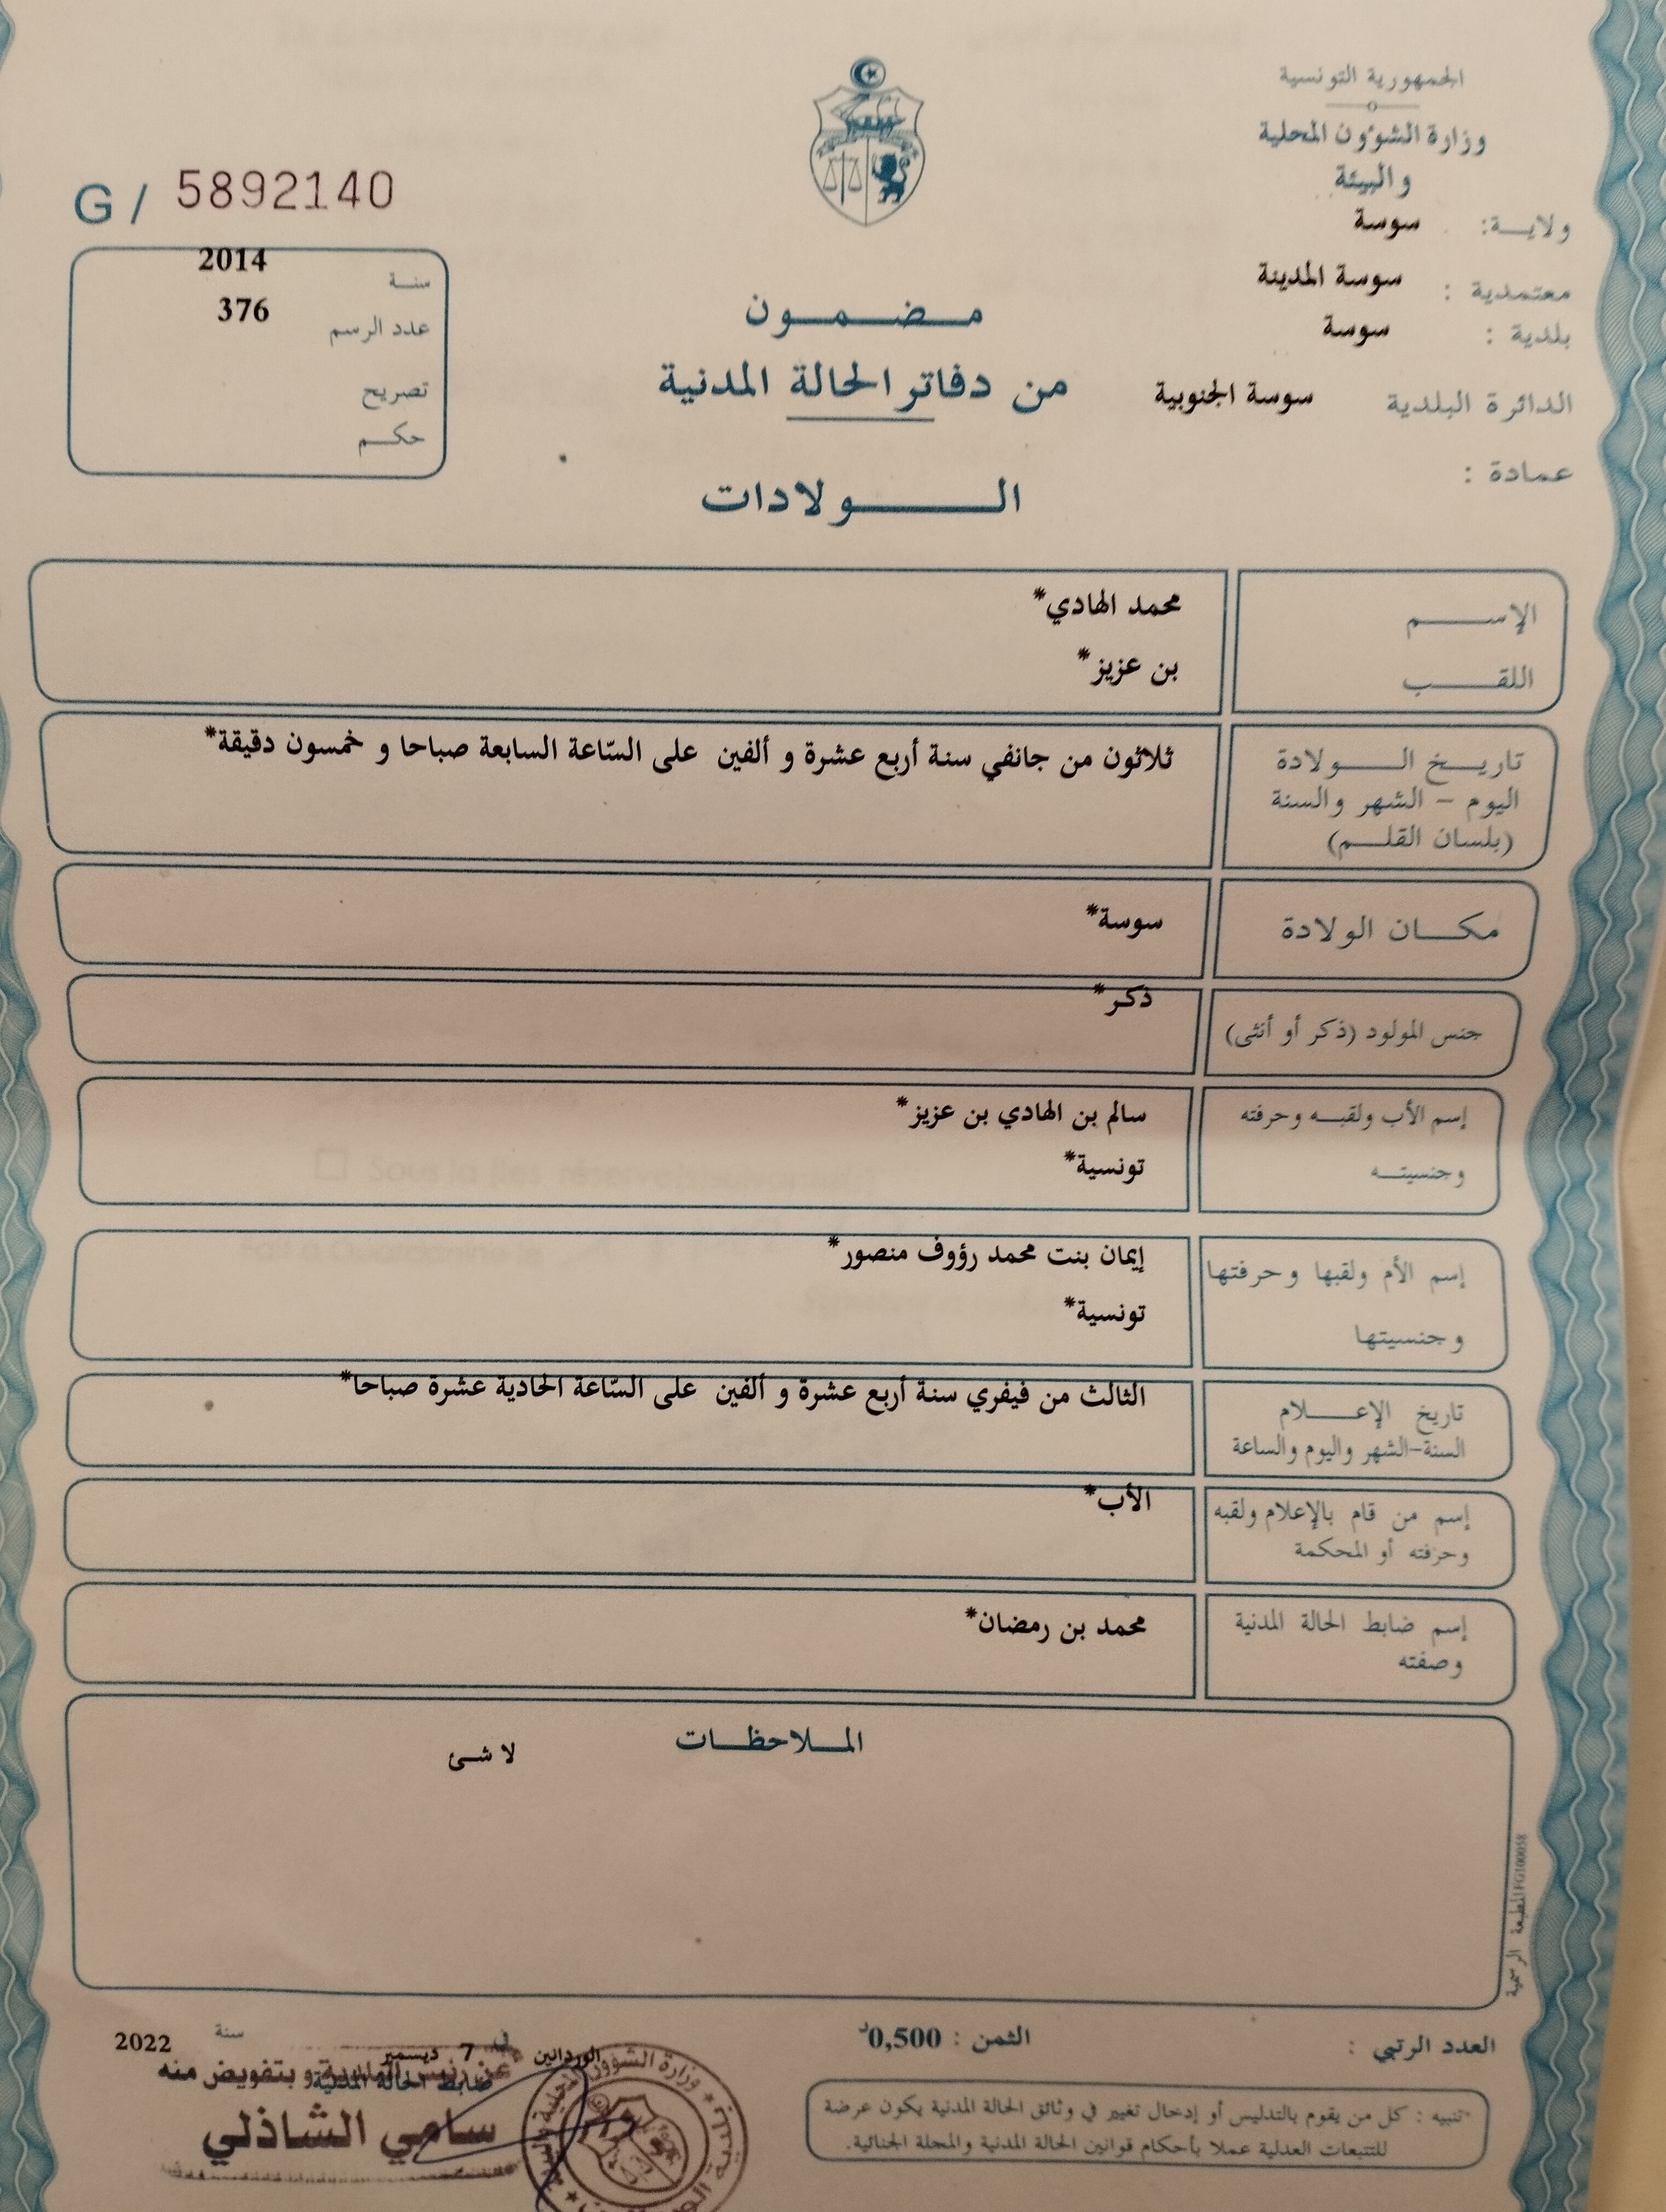 الجمهورية التونسية
وزارة الشؤون المحلية
والبيئة
ولاية: سوسة
معتمدية : سوسة المدينة
بلدية : سوسة
الدائرة البلدية سوسة الجنوبية
عمادة :
G / 5892140
سنة 2014
عدد الرسم 376
تصريح
حكم
مضمون
من دفاتر الحالة المدنية
الولادات
الإسم محمد الهادي*
اللقب بن عزيز*
تاريخ الولادة ثلاثون من جانفي سنة أربع عشرة و ألفين على السّاعة السابعة صباحا و خمسون دقيقة*
اليوم – الشهر والسنة
(بلسان القلم)
مكان الولادة سوسة*
جنس المولود (ذكر أو أنثى) ذكر*
إسم الأب ولقبه وحرفته سالم بن الهادي بن عزيز*
وجنسيته تونسية*
إسم الأم ولقبها وحرفتها إيمان بنت محمد رؤوف منصور*
وجنسيتها تونسية*
تاريخ الإعلام الثالث من فيفري سنة أربع عشرة و ألفين على السّاعة الحادية عشرة صباحا*
السنة-الشهر واليوم والساعة
إسم من قام بالإعلام ولقبه الأب*
وحرفته أو المحكمة
إسم ضابط الحالة المدنية محمد بن رمضان*
وصفته
الملاحظات
لا شئ
المطبعة الرسمية FG100058
العدد الرتبي :
الثمن : 0,500د
تنبيه : كل من يقوم بالتدليس أو إدخال تغيير في وثائق الحالة المدنية يكون عرضة
للتتبعات العدلية عملا بأحكام قوانين الحالة المدنية والمجلة الجنائية.
الوردانين في 7 ديسمبر سنة 2022
ضابط الحالة المدنية
عن رئيس البلدية و بتفويض منه
سامي الشاذلي
وزارة الشؤون المحلية